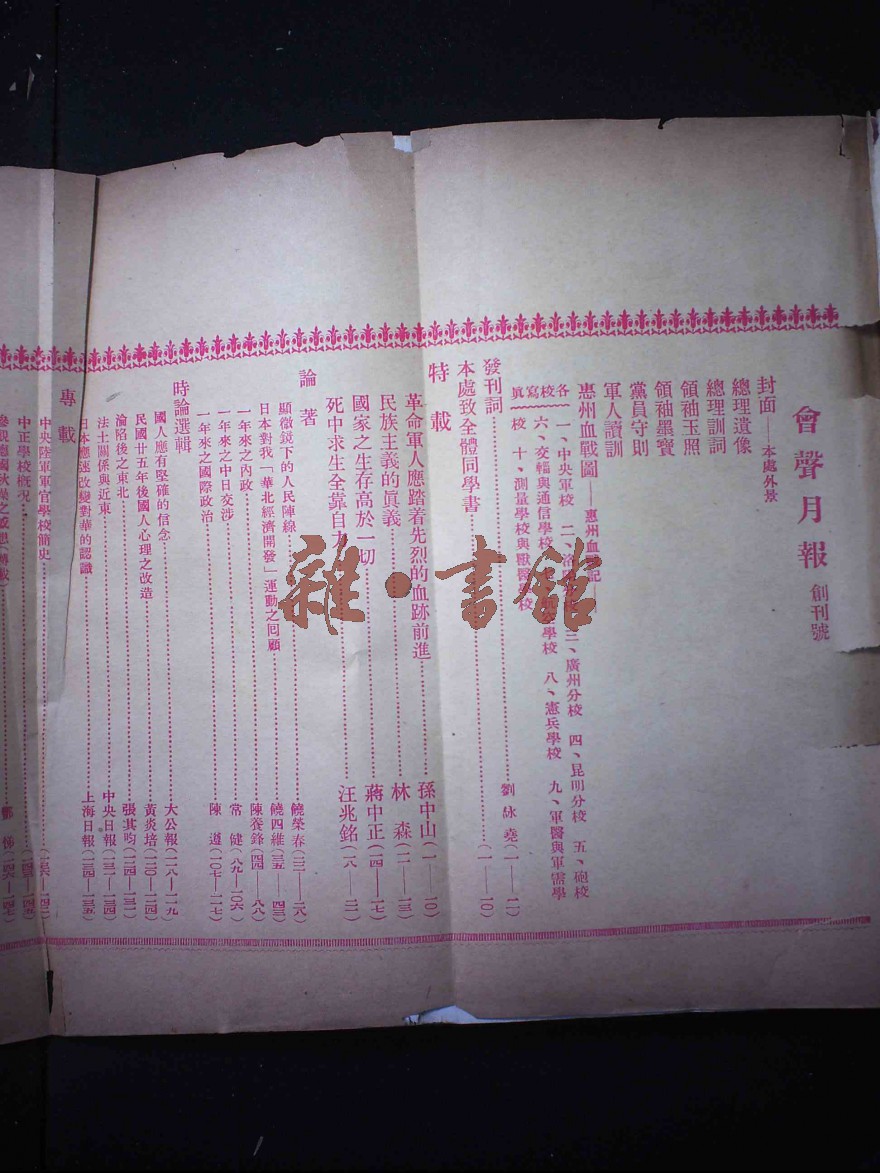 會聲月報 創刊號
封面——本處外景
總理遺像
總理訓詞
領袖玉照
領袖墨寶
黨員守則
軍人讀訓
惠州血戰圖——惠州血戰記——
各校寫眞
一、中央軍校 二、洛 三、廣州分校 四、昆明分校 五、砲校
六、交輜與通信學校 學校 八、憲兵學校 九、軍醫與軍需學
校 十、測量學校與獸醫學校
發刊詞 劉詠堯(一——二)
本處致全體同學書 (一——一〇)
特載
革命軍人應踏着先烈的血跡前進 孫中山(一——一〇)
民族主義的眞義 林森(一一——一三)
國家之生存高於一切 蔣中正(一四——一七)
死中求生全靠自力 汪兆銘(一八——二一)
論著
顯微鏡下的人民陣線 饒榮春(二二——二八)
日本對我「華北經濟開發」運動之囘顧 饒四維(三五——四三)
一年來之內政 陳養鋒(四四——八八)
一年來之中日交涉 常健(八九——一〇六)
一年來之國際政治 陳遵(一〇七——一一七)
時論選輯
國人應有堅確的信念 大公報(一一八——一一九)
民國廿五年後國人心理之改造 黃炎培(一二〇——一二四)
淪陷後之東北 張其昀(一二四——一三一)
法土關係與近東 中央日報(一三一——一三四)
日本應速改變對華的認識 上海日報(一三四——一三五)
專載
中央陸軍軍官學校簡史 (一三六——一四二)
中正學校概況 (一四三——一四五)
參觀德國秋操之感想(轉載) 鄧悌(一四六——一四七)
雜·書館